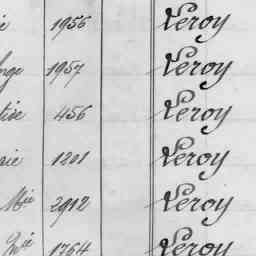 ie 1956 Leroy
nge 1957 Leroy
tide 456 Leroy
aie 1201 Leroy
Mie 2912 Leroy
1764 Leroy